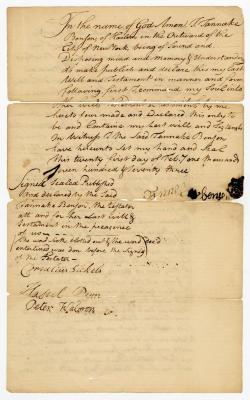 In the name of God Amen I Tannake
Bensen of Harlem in the Outwards of the
City of New York being of Sound and
Disposing mind and Memory & Understanding
do make publish and declare this my Last
Will and Testament in manner and form
following first I commend my Soul into
other Wills
hertofore made and Declared this only to
be and Containe my Last will and Testament
In Witness I the Said Tannake Bensen
have hereunto Set my hand and Seal
this twenty first day of
Seven hundred & Seventy three
Signed Sealed Published
and declared by the Said
Tannake Bensen the Testator
as and for her Last will &
Testament in the presence
of us
The word
enterlined was don before the Signing
of the Testator
Cornelius Sickels
Peter Waldron